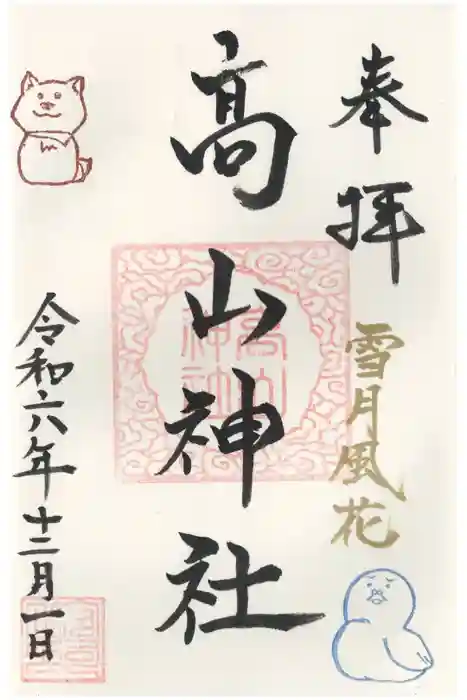 奉拝
雪月風花
高山神社
高山神社
令和六年十二月一日